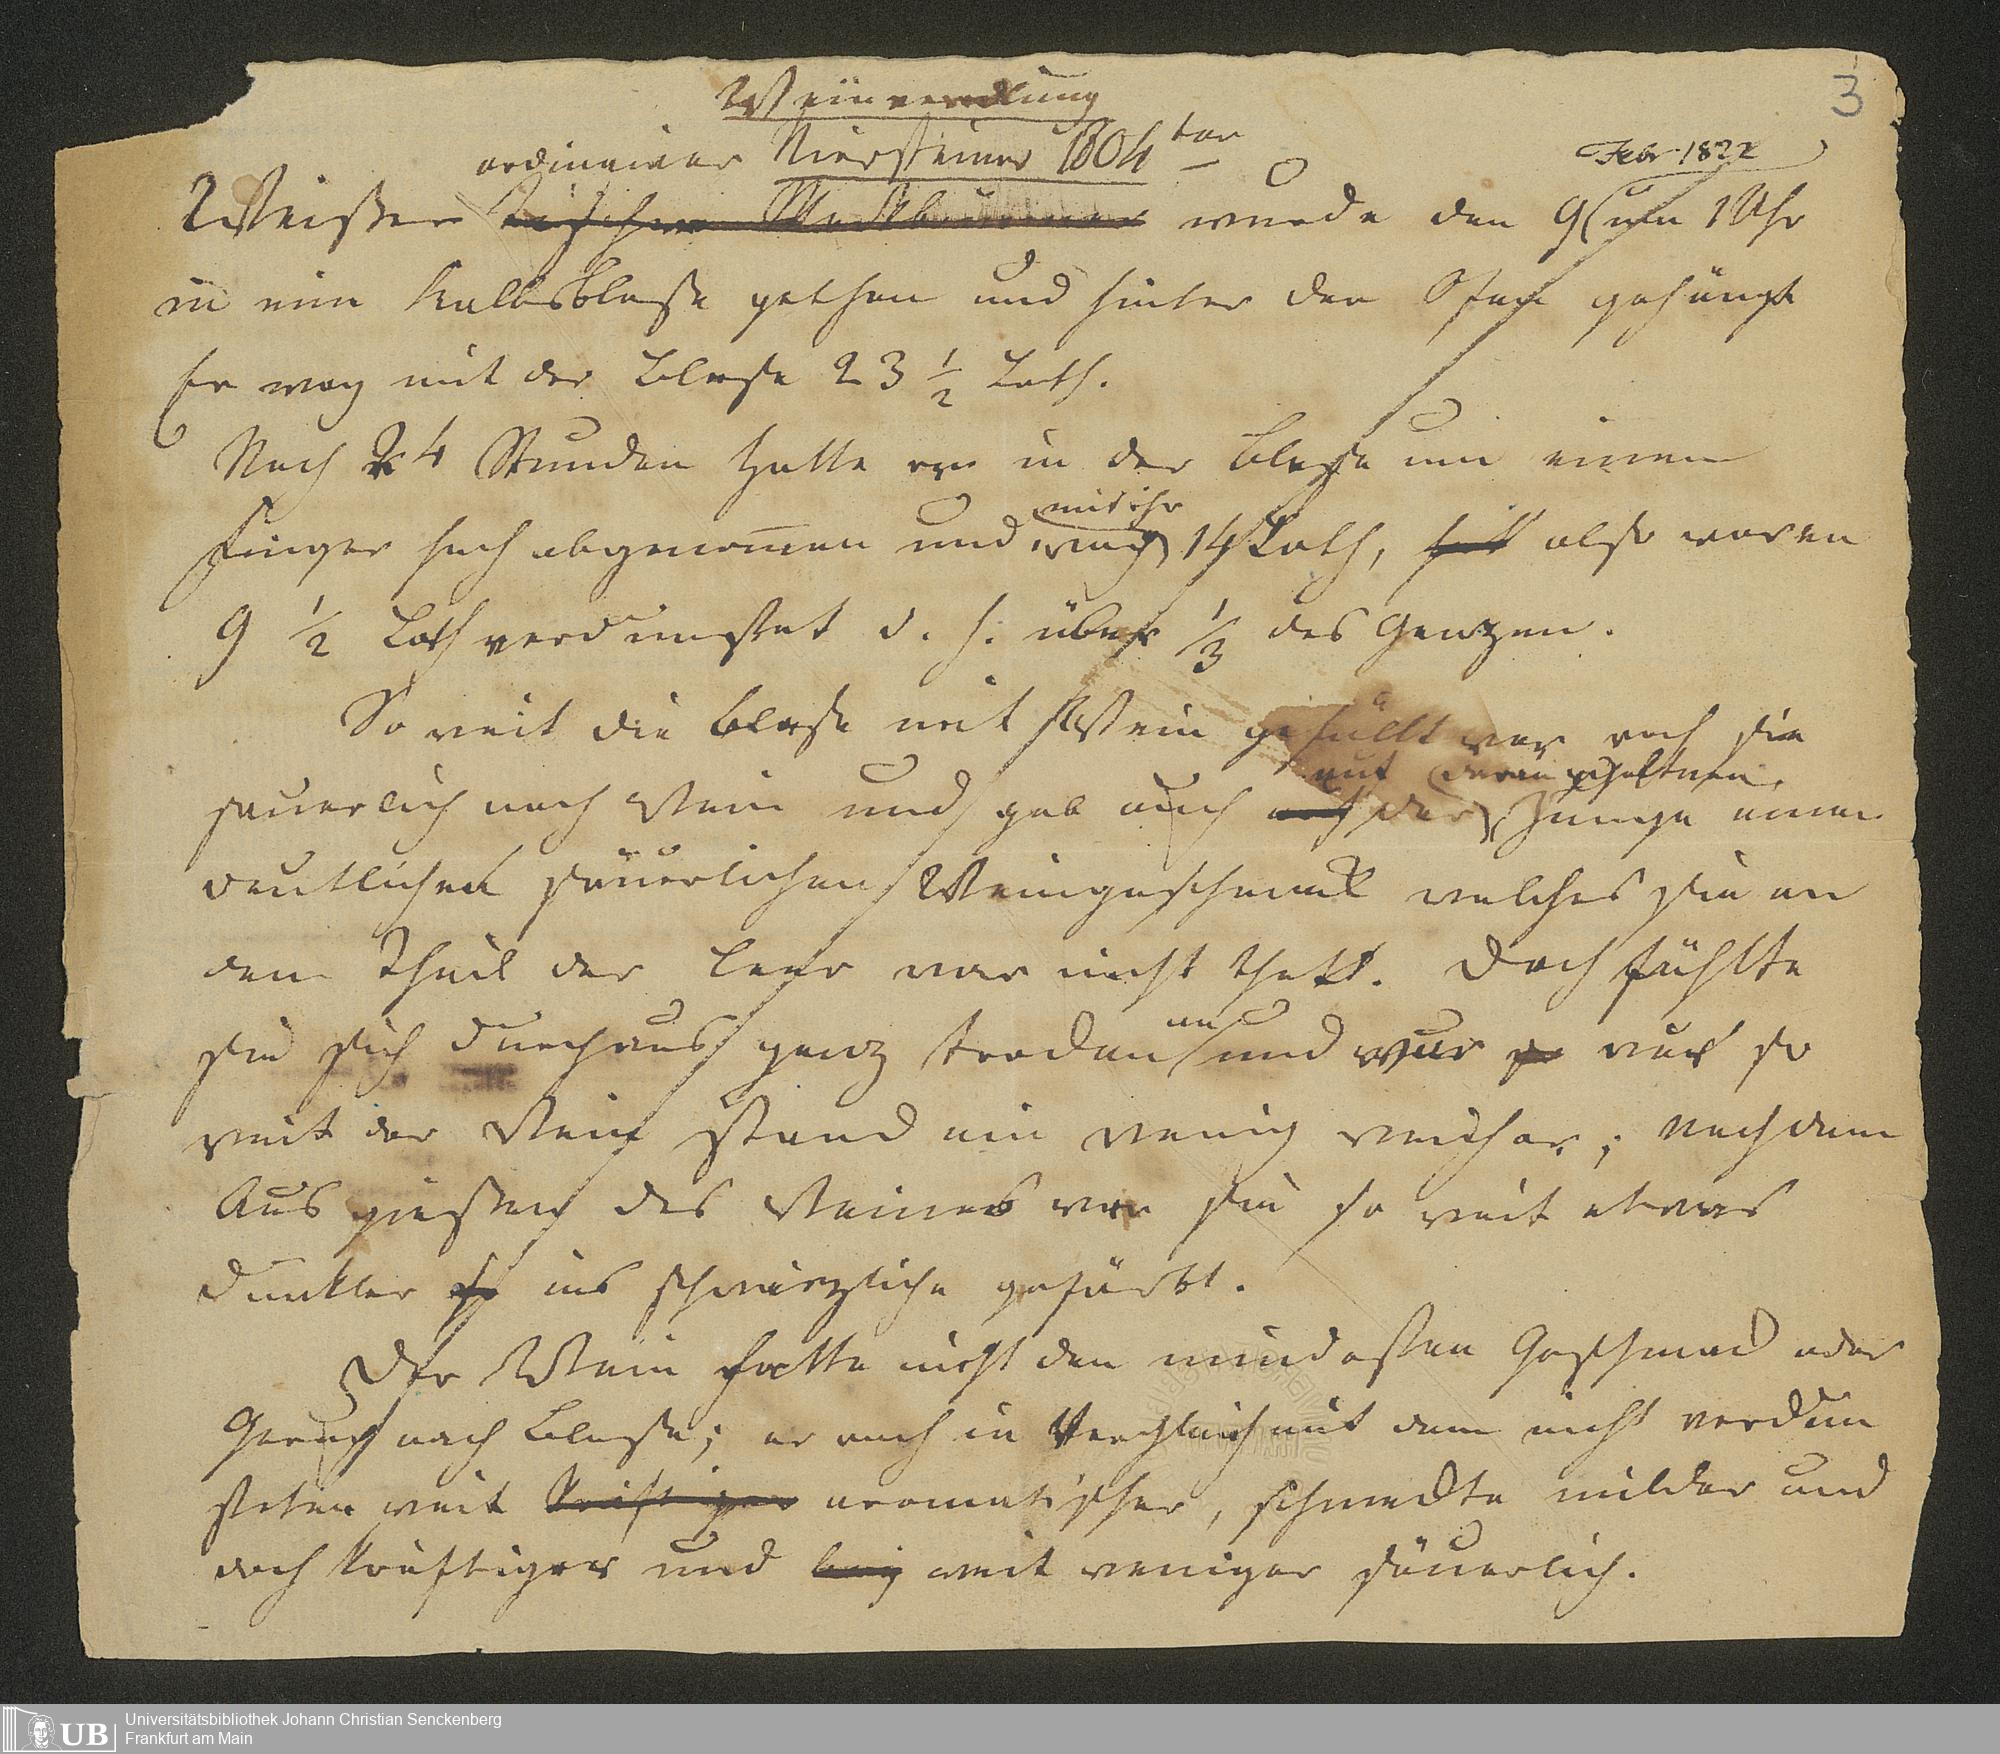 3
Weinveredlung
ordinairer Niersteiner 1804ter
Febr 1822
Weißer wurde den 9 um 1 Uhr
in eine Kalbsblase gethan und hinter den Ofen gehängt
Er wog mit der Blase 23 1/2 Loth.
Nach 24 Stunden hatte er in der Blase um einen
mit ihr
Finger hoch abgenom̅en und wog 14 Loth, also waren
9 1/2 Loth verdunstet d. h. über 1/3 des Ganzen.
So weit die Blase mit Wein gefüllt war roch sie
mit daran gehaltnen
säuerlich nach Wein und gab auch der Zunge einen
deutlichen säuerlichen Weingeschmack welches sie an
dem Theil der leer war nicht that. Doch fühlte
an
sie sich durchaus ganz trocken und war nur so
weit der Wein stand ein wenig weicher; nach dem
Ausgießen des Weines war sie so weit etwas
dunkler ins schwärzliche gefärbt.
Der Wein hatte nicht den mindesten Geschmack oder
Geruch nach Blase; er roch in Vergleich mit dem nicht verdun
steten weit kräftiger aromatischer, schmeckte milder und
doch kräftiger und weit weniger säuerlich.
Universitätsbibliothek Johann Christian Senckenberg
Frankfurt am Main
UB